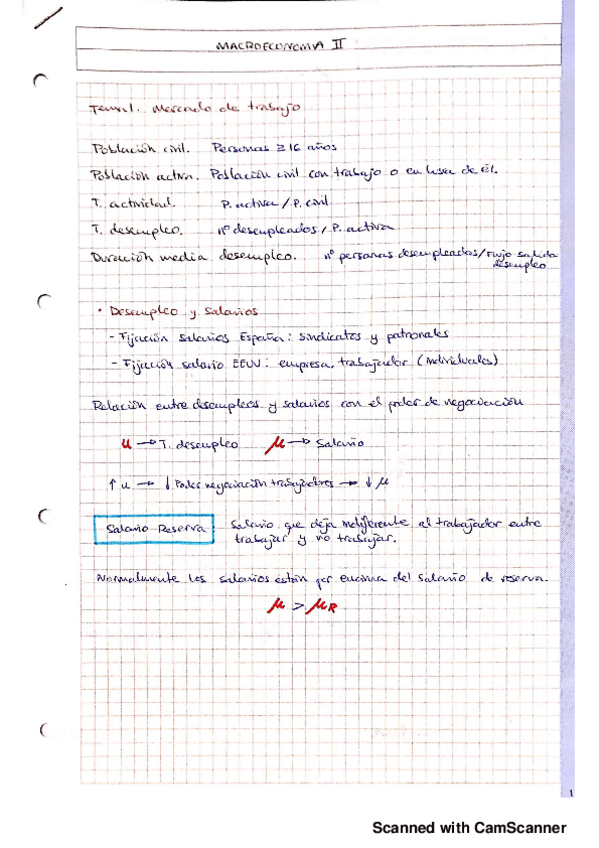 MACROECONOMIA II
Tema 1. Mercado de trabajo
Población civil. Personas ≥ 16 años
Población activa. Población civil con trabajo o en busca de él.
T. actividad. P. activa / P. civil
T. desempleo. nº desempleados / P. activa
Duración media desempleo. nº personas desempleadas / Flujo salida
desempleo
• Desempleo y Salarios
- Fijación salarios España: sindicatos y patronales
- Fijación salario EEUU: empresa, trabajador (individuales)
Relación entre desempleos y salarios con el poder de negociación
u → T. desempleo μ → Salario
↑ u → ↓ Poder negociación trabajadores → ↓ μ
Salario Reserva Salario que deja indiferente al trabajador entre
trabajar y no trabajar.
Normalmente los salarios están por encima del salario de reserva.
μ > μR
1
Scanned with CamScanner